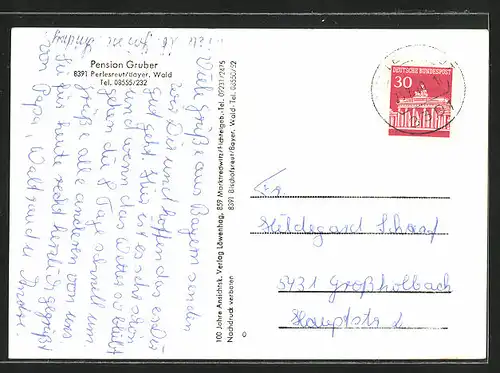 Pension Gruber
8391 Perlesreut/Bayer. Wald
Tel. 08555/232
Viele Grüße aus Bayern senden
wir Dir und hoffen das es Dir
gut geht. Hier ist es sehr schön
und wenn das Wetter so bleibt
gehen die 8 Tage schnell um.
grüße alle anderen von uns
sei für heute recht herzlich gegrüßt
von Papa, Waltraud u.
100 Jahre Ansichtsk. Verlag Löwenhag, 859 Marktredwitz/Fichtelgeb.-Tel. 09231/2475
Nachdruck verboten 8391 Bischofsreut/Bayer. Wald-Tel. 08550/292
DEUTSCHE BUNDESPOST
30
Hildegard
5431 Großholbach
Hauptstr